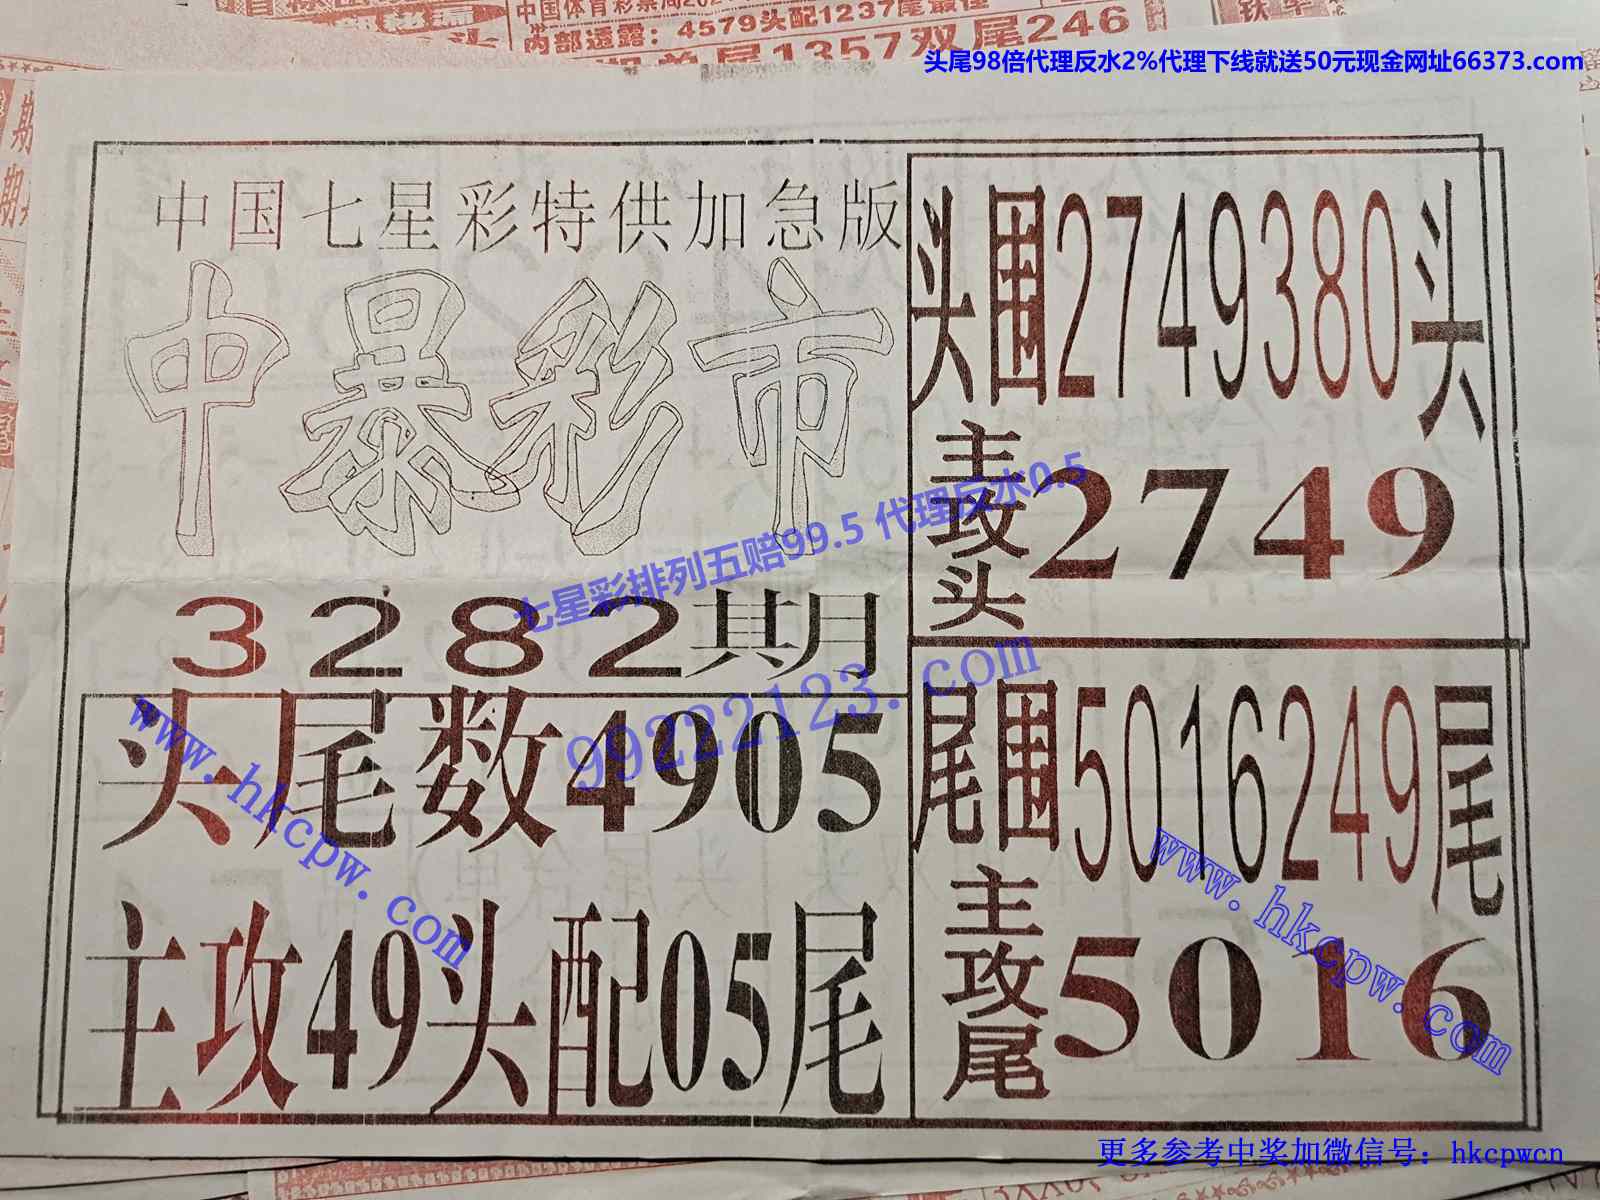 中国体育彩票局202
内部透露：4579头配1237尾最佳
单尾1357双尾246
头尾98倍代理反水2%代理下线就送50元现金网址66373.com
中国七星彩特供加急版
中暴彩市
3282期
头尾数4905
主攻49头配05尾
头围2749380头
主攻头2749
尾围5016249尾
主攻尾5016
七星彩排列五赔99.5 代理反水0.5
99222123.com
www.hkcpw.com
www.hkcpw.com
更多参考中奖加微信号：hkcpwcn